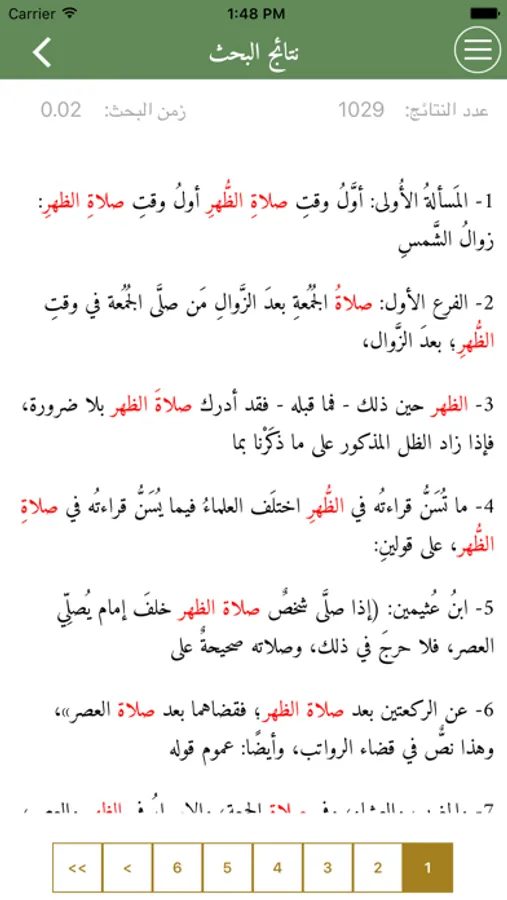 Carrier 1:48 PM
نتائج البحث
عدد النتائج: 1029 زمن البحث: 0.02
1- المَسألةُ الأُولى: أوَّلُ وقتِ صلاةِ الظُّهرِ أولُ وقتِ صلاةِ الظهرِ:
زوالُ الشَّمسِ
2- الفرع الأول: صلاةُ الجُمُعةِ بعدَ الزَّوالِ مَن صلَّى الجُمُعة في وقتِ
الظُّهرِ؛ بعدَ الزَّوال،
3- الظهر حين ذلك - فما قبله - فقد أدرك صلاةَ الظهر بلا ضرورة،
فإذا زاد الظل المذكور على ما ذكَرْنا بما
4- ما تُسَنُّ قراءتُه في الظُّهرِ اختلَف العلماءُ فيما يُسَنُّ قراءتُه في صلاةِ
الظُّهر، على قولينِ:
5- ابنُ عُثيمين: (إذا صلَّى شخصٌ صلاة الظهر خلفَ إمام يُصلِّي
العصر، فلا حرجَ في ذلك، وصلاته صحيحةٌ على
6- عن الركعتين بعد صلاة الظهر؛ فقضاهما بعد صلاة العصر»،
وهذا نصٌّ في قضاء الرواتب، وأيضًا: عموم قوله
7-
1 2 3 4 5 6 > >>